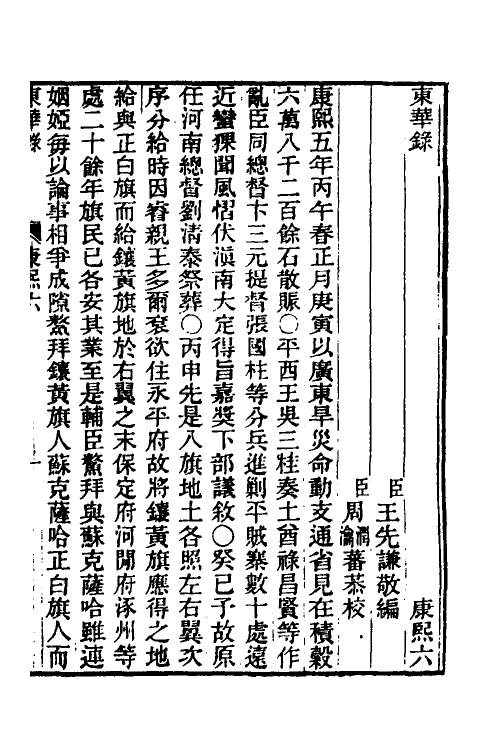 東華錄　康熙六
臣王先謙敬編
臣周潤蕃瀹蕃恭校
康熙五年丙午春正月庚寅以廣東旱災命動支通省見在積穀
六萬八千二百餘石散賑〇平西王吳三桂奏土酋祿昌賢等作
亂臣同總督卞三元提督張國柱等分兵進剿平賊寨數十處遠
近蠻猓聞風慴伏滇南大定得旨嘉獎下部議敘〇癸巳予故原
任河南總督劉清泰祭葬〇丙申先是八旗地土各照左右翼次
序分給時因睿親王多爾袞欲住永平府故將鑲黃旗應得之地
給與正白旗而給鑲黃旗地於右翼之末保定府河閒府涿州等
處二十餘年旗民已各安其業至是輔臣鰲拜與蘇克薩哈雖連
姻婭每以論事相爭成隙鰲拜鑲黃旗人蘇克薩哈正白旗人而
東華錄　康熙六　一